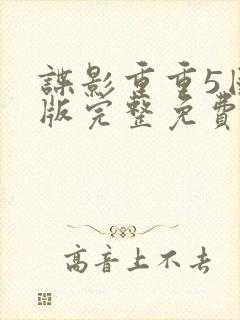 諜影重重5
版完整免費
高音上不去